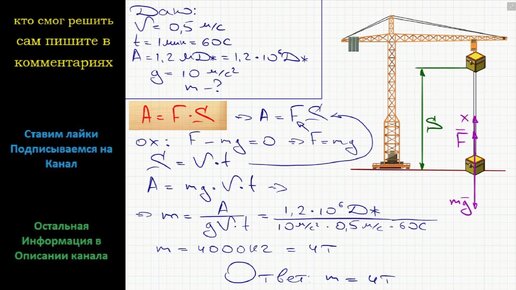 кто смог решить
сам пишите в
комментариях
Ставим лайки
Подписываемся на
Канал
Остальная
Информация в
Описании канала
Дано:
V = 0,5 м/с
t = 1 мин = 60с
A = 1,2 МДж = 1,2·10⁶Дж
g = 10 м/с²
m - ?
A = F·S ⇒ A = F S
ox: F - mg = 0 ⇒ F = mg
S = V·t
A = mg·V·t ⇒
⇒ m = A / gV·t = 1,2·10⁶Дж / 10м/с²·0,5м/с·60с
m = 4000кг = 4т
Ответ: m = 4т
S
x
F
mg